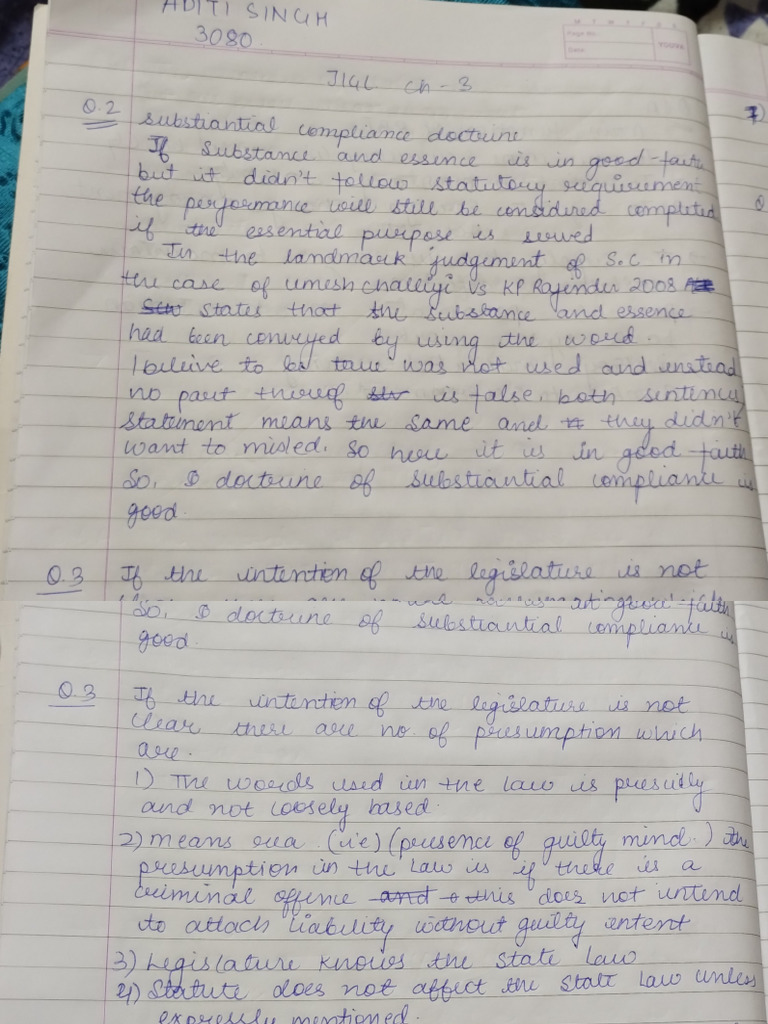 ADITI SINGH
3080
Page No.
Date:
YOUVA
JIGL ch-3
Q.2 substiantial compliance doctrine
If substance and essence is in good-faith
but it didn't follow statutory requirement
the performance will still be considered completed
if the essential purpose is served
In the landmark judgement of S.C in
the case of umesh challiyi Vs KP Rajender 2008
states that the substance and essence
had been conveyed by using the word.
I beleive to be true was not used and instead
no part thereof is false. both sentence
statement means the same and they didn't
want to misled. So here it is in good faith
So, doctrine of substiantial compliance is
good.
Q.3 If the intention of the legislature is not
So, doctrine of substiantial compliance is
good.
Q.3 If the intention of the legislature is not
clear there are no. of presumption which
are.
1) The words used in the law is presicily
and not loosely based.
2) means rea (i.e) (presence of guilty mind.) the
presumption in the law is if there is a
criminal offence and this does not intend
to attach liability without guilty intent
3) Legislature knows the state law
4) Statute does not affect the state law unless
expressly mentioned.
7)